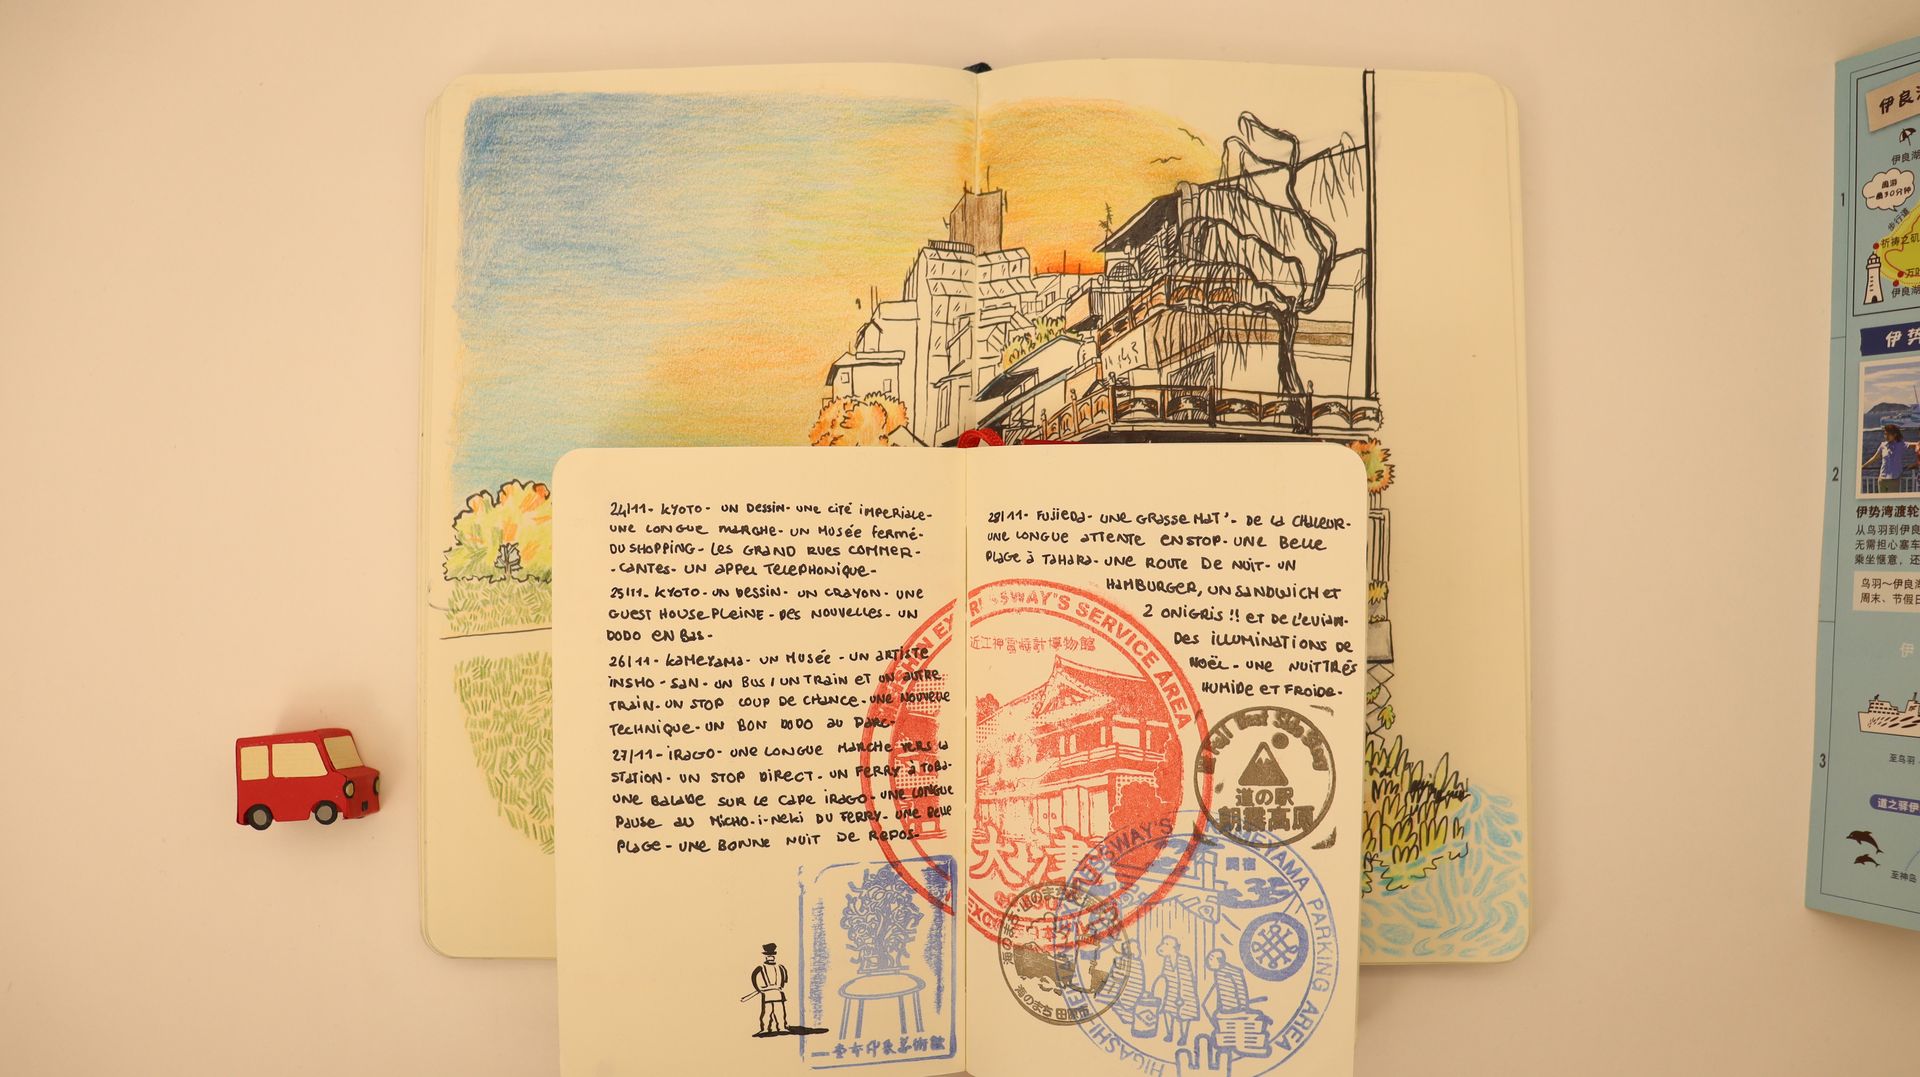 24/11 - KYOTO - UN DESSIN - UNE CITÉ IMPERIALE -
UNE LONGUE MARCHE - UN MUSÉE FERMÉ -
DU SHOPPING - LES GRAND RUES COMMER-
-CANTES - UN APPEL TELEPHONIQUE -
25/11 - KYOTO - UN DESSIN - UN CRAYON - UNE
GUEST HOUSE PLEINE - DES NOUVELLES - UN
DODO EN BAS -
26/11 - KAMEYAMA - UN MUSÉE - UN ARTISTE
INSHO-SAN - UN BUS / UN TRAIN ET UN AUTRE
TRAIN - UN STOP COUP DE CHANCE - UNE NOUVELLE
TECHNIQUE - UN BON DODO AU PARC -
27/11 - IRAGO - UNE LONGUE MARCHE VERS LA
STATION - UN STOP DIRECT - UN FERRY À TOBA -
UNE BALADE SUR LE CAPE IRAGO - UNE LONGUE
PAUSE AU MICHO-I-NEKI DU FERRY - UNE BELLE
PLAGE - UNE BONNE NUIT DE REPOS -
28/11 - FUJIEDA - UNE GRASSE MAT' - DE LA CHALEUR -
UNE LONGUE ATTENTE EN STOP - UNE BELLE
PLAGE À TAHARA - UNE ROUTE DE NUIT - UN
HAMBURGER, UN SANDWICH ET
2 ONIGRIS !! ET DE L'EVIAN -
DES ILLUMINATIONS DE
NOËL - UNE NUIT TRÉS
HUMIDE ET FROIDE -
EXPRESSWAY'S SERVICE AREA
近江神宮時計博物館
大津
道の駅
朝霧高原
海のまち 田原市
関宿
亀
KAMEYAMA PARKING AREA
HIGASHI
美術館
1
2
3
伊良
伊良湖
周游
一圈30分钟
步行道
祈祷之矶
伊良湖
伊势
伊势湾渡轮
从鸟羽到伊良
无需担心塞车
乘坐惬意，还
鸟羽～伊良湖
周末、节假日
伊
至鸟羽
道之驿伊
至神岛